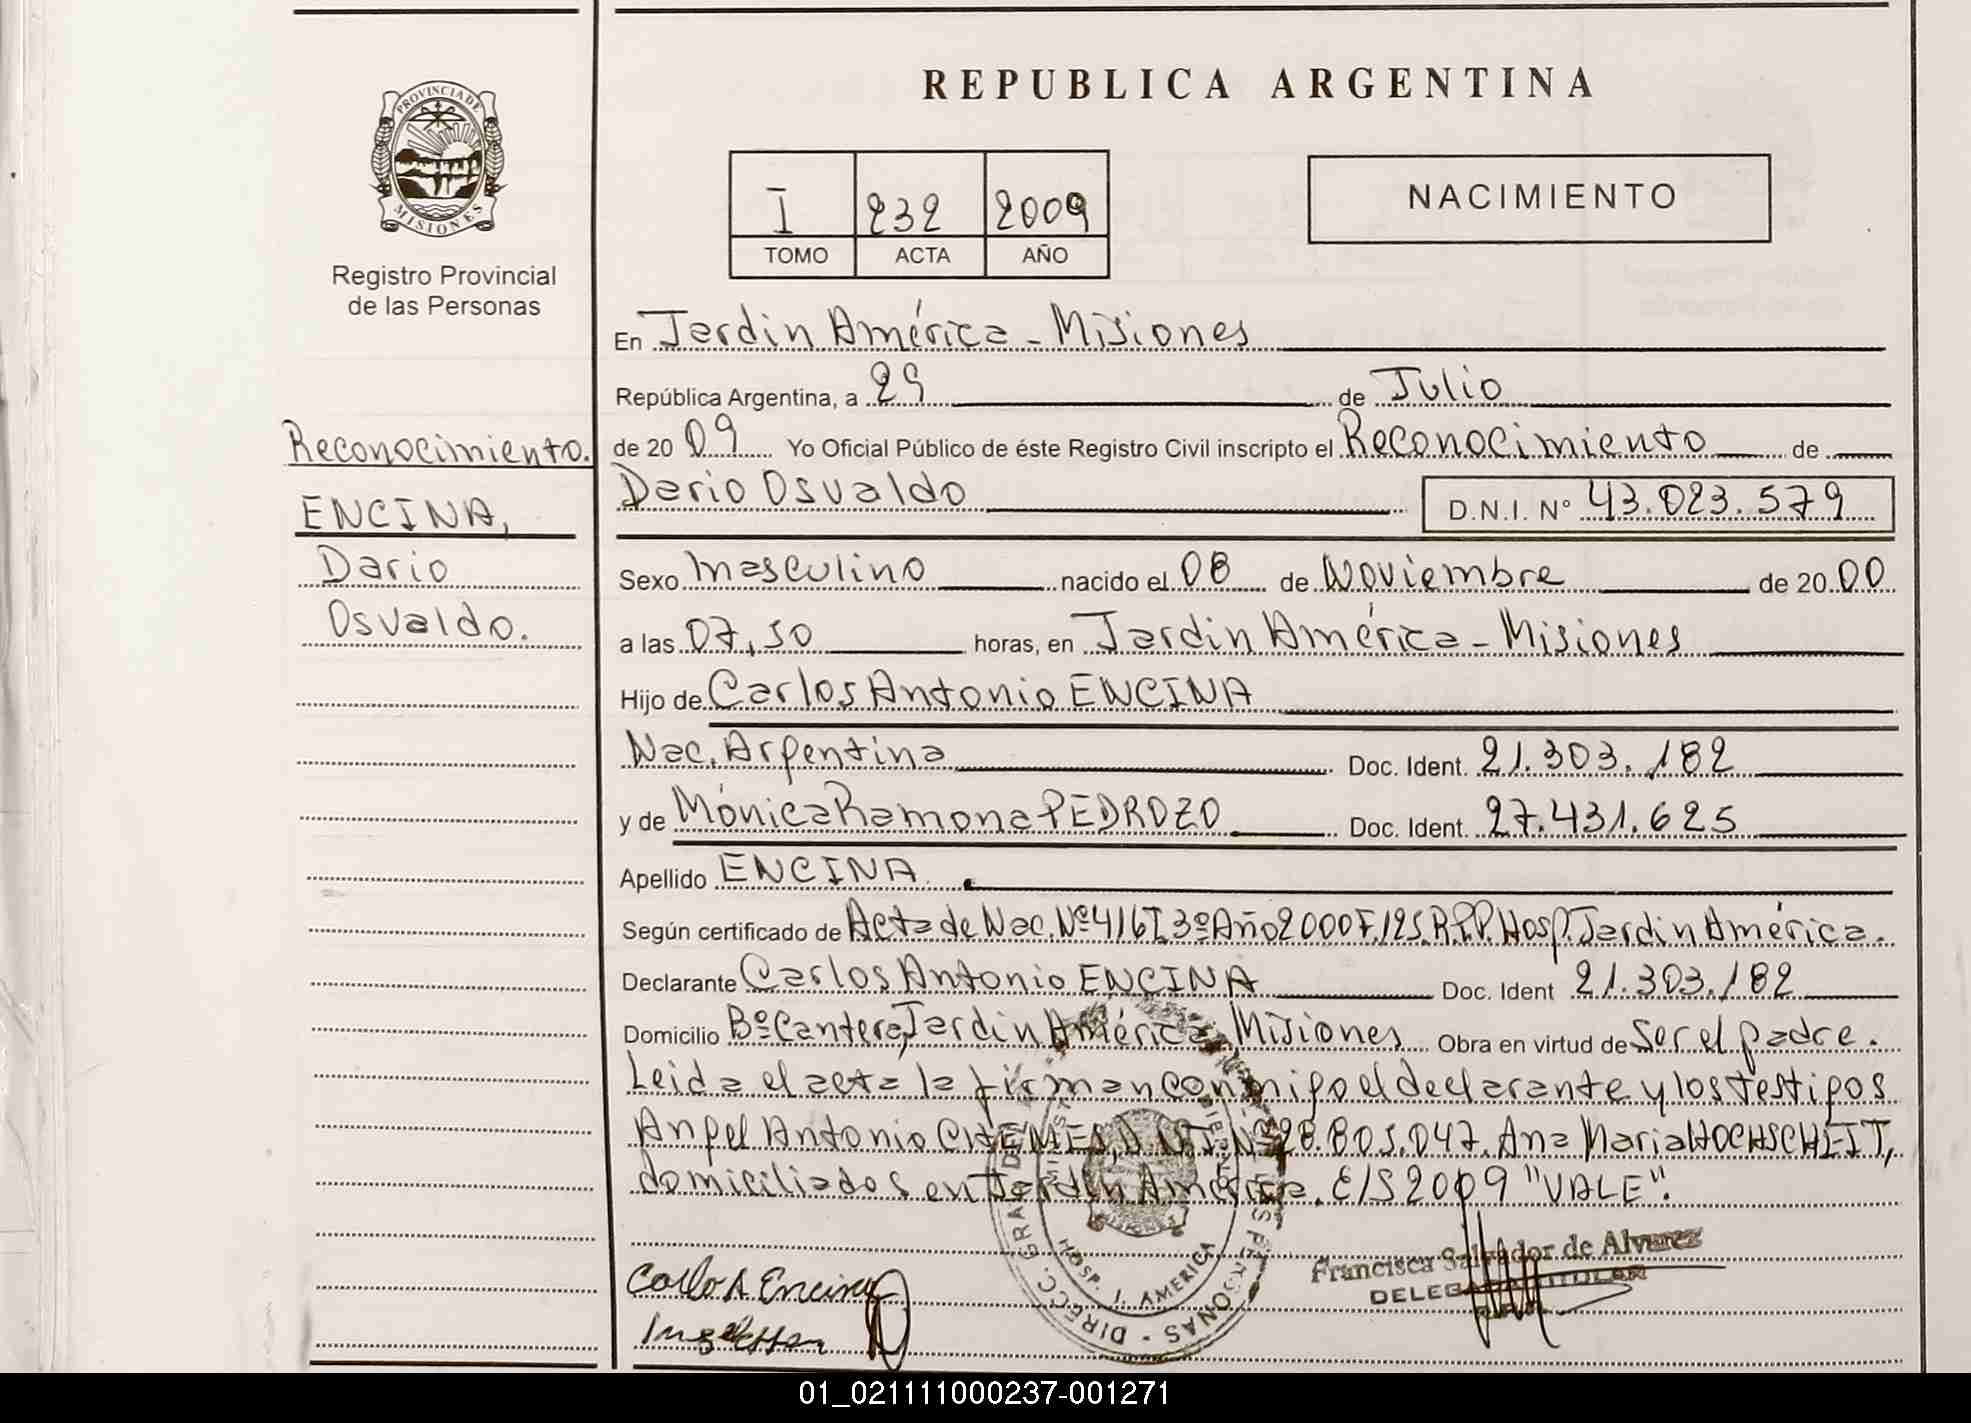 PROVINCIA DE
MISIONES
Registro Provincial
de las Personas
Reconocimiento.
ENCINA,
Dario
Osvaldo.
REPUBLICA ARGENTINA
I 232 2009
TOMO ACTA AÑO
NACIMIENTO
En Jardin América - Misiones
República Argentina, a 29 de Julio
de 20 09 Yo Oficial Público de éste Registro Civil inscripto el Reconocimiento de
Dario Osvaldo D.N.I. N° 43.023.579
Sexo Masculino nacido el 08 de Noviembre de 20 00
a las 07,50 horas, en Jardin América - Misiones
Hijo de Carlos Antonio ENCINA
Nac. Argentina Doc. Ident. 21.303.182
y de Mónica Ramona PEDROZO Doc. Ident. 27.431.625
Apellido ENCINA
Según certificado de Acta de Nac. Nº 416 T. 3º Año 2000 F. 125. R.P.P. Hosp. Jardin América.
Declarante Carlos Antonio ENCINA Doc. Ident 21.303.182
Domicilio Bº Cantera, Jardin América, Misiones Obra en virtud de Ser el padre.
Leida el acta la firman conmigo el declarante y los testigos
Angel Antonio D.N.I. Nº 28.805.047. Ana Maria HOCHSCHEIT,
domiciliados en Jardin América. E/S 2009 "VALE".
Carlo A Encina
Francisca Salvador de Alvarez
DELEGADA TITULAR
HOSP. J. AMERICA
01_021111000237-001271